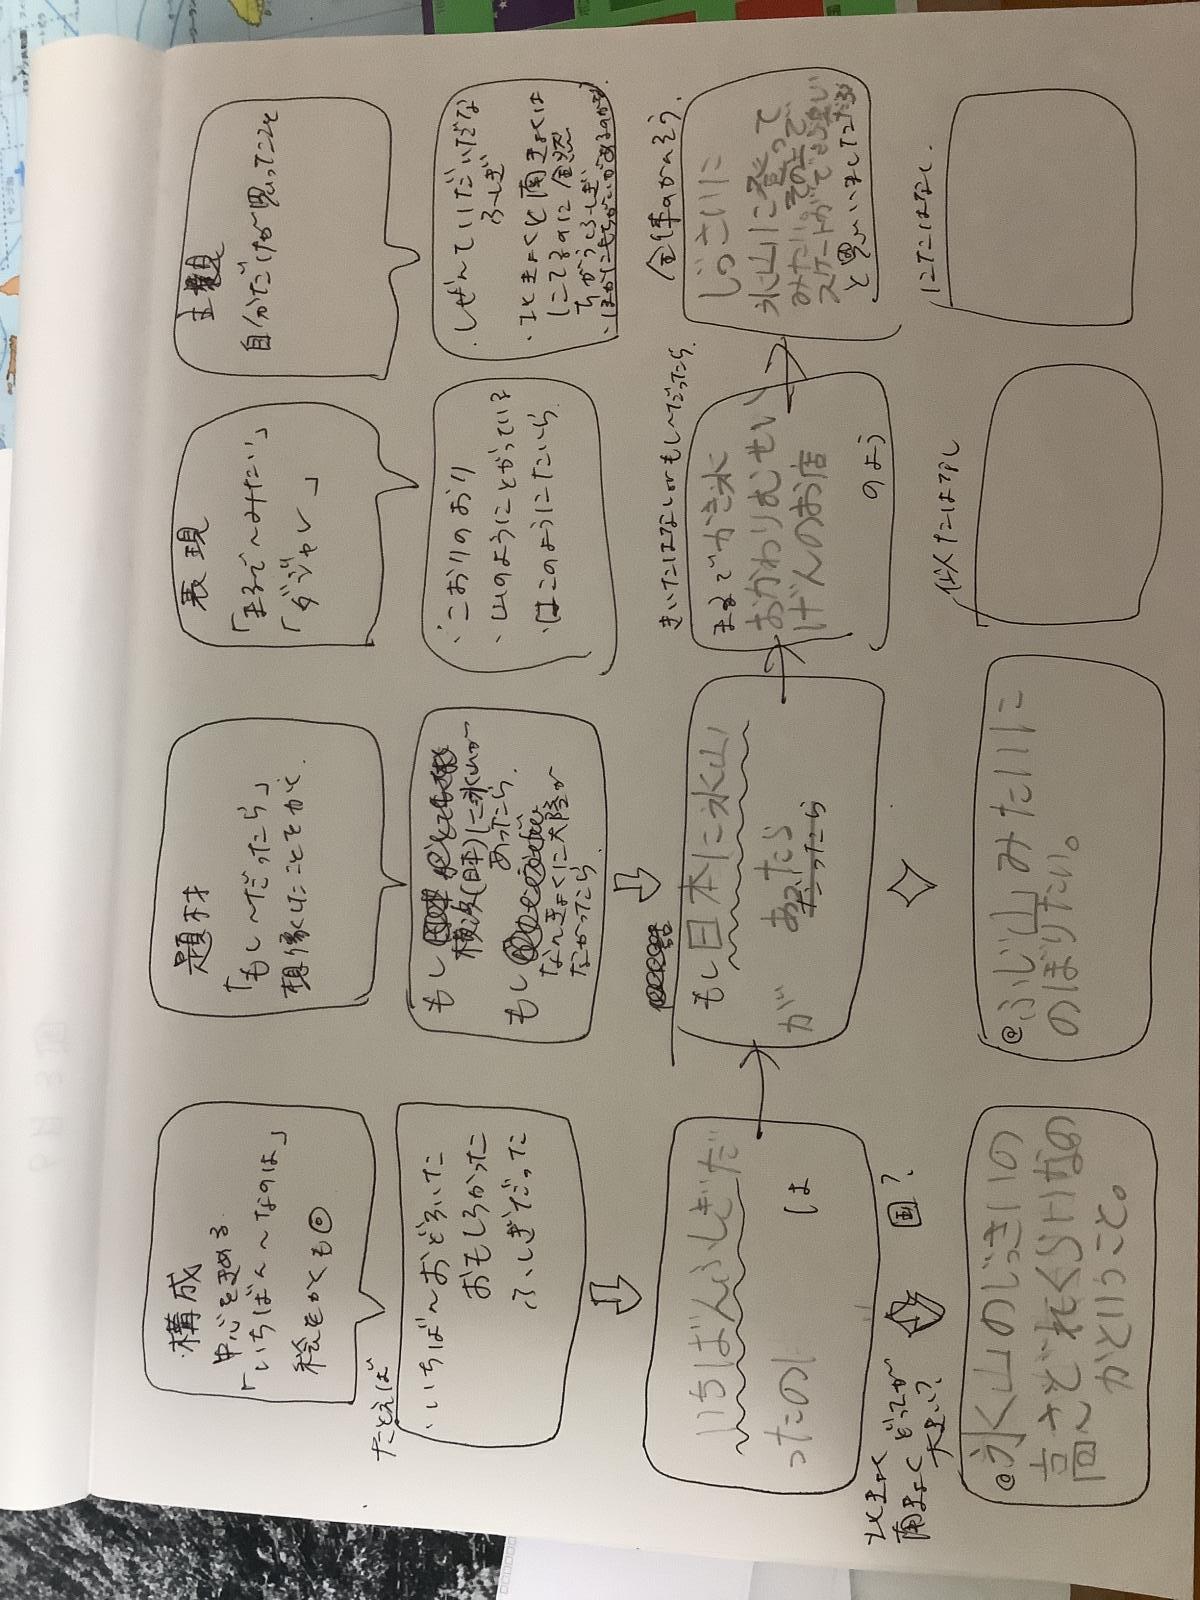 構成
中心をきめる
「いちばん〜なのは」
絵をかくも◎
題材
「もし〜だったら」
想像したことをかく
表現
「まるで〜みたい」
「ダジャレ」
主題
自分だけが思ったこと
たとえば
・いちばん〜おどろいた
おもしろかった
ふしぎだった
もし
横浜(日本)に氷山が
あったら
もし
なんきょくに大陸が
なかったら
・こおりのおり
・山のようにとがっている
・はこのようにたいら
・しぜんていだいだな
ふしぎ
・ほっきょくと南きょくは
にてるのに全然
ちがうふしぎ
いちばんふしぎだ
ったのは
は
もし日本に氷山
が
あったら
だったら
きいたはなしorもし〜だったら
まるでかき氷
おかわりむせい
げんのお店
のよう
全体のかんそう
じっさいに
氷山に登って
みたい。その上で
スケートができる
と思いました
北きょく
南きょく どっちが
大きい?
国?
@氷山のじっさいの
高さどれくらいなの
かということ。
@ふじ山みたいに
のぼりたい。
似たはなし
にたはなし